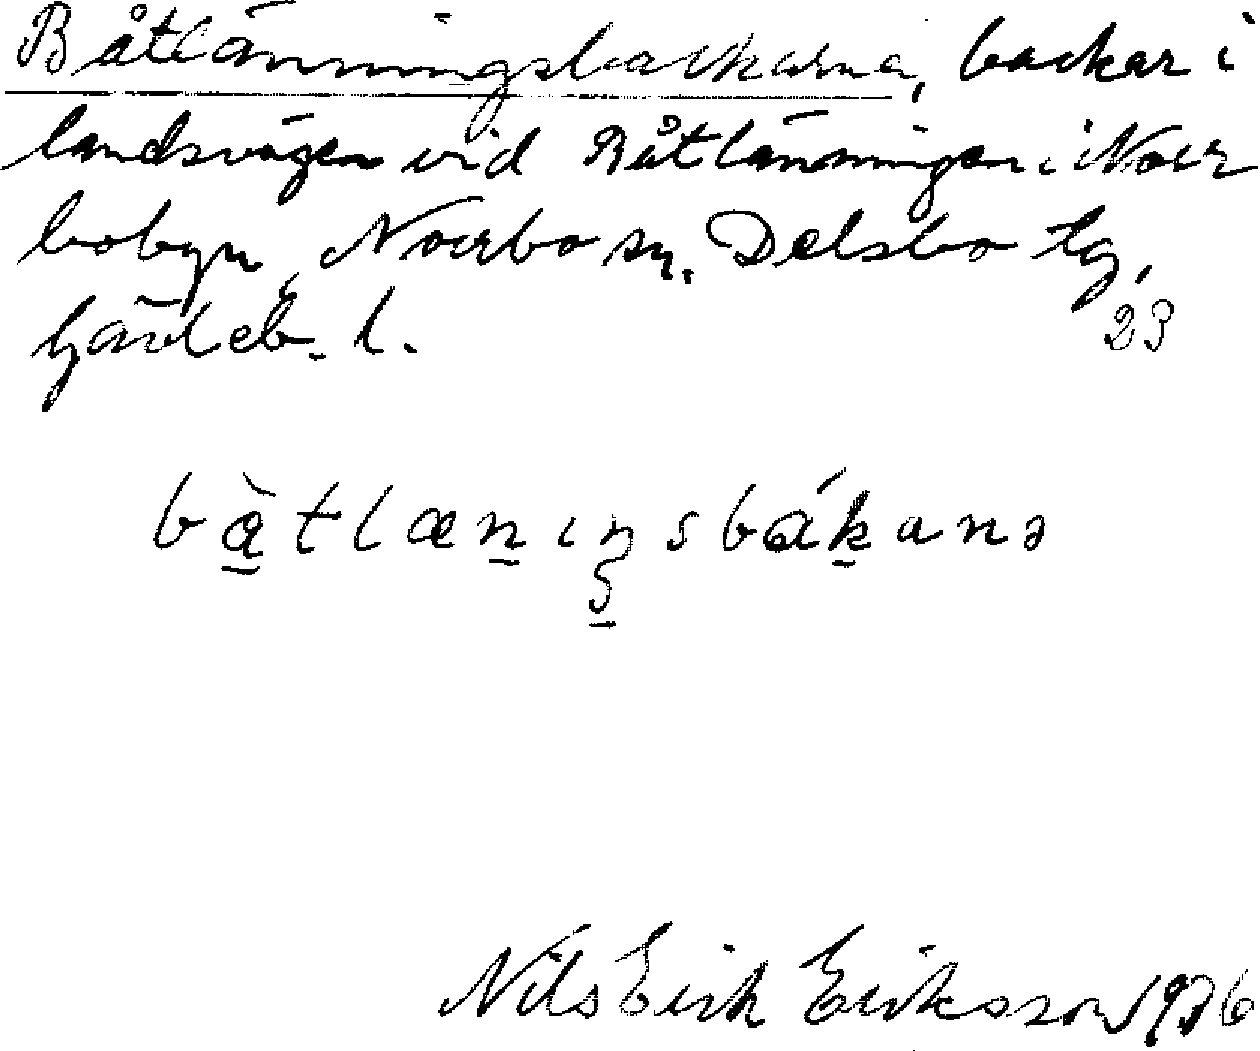 Båtlänningsbackarna, backar i
landsvägen vid Båtlänningen i Norr
bobyn, Norrbo sn. Delsbo tg,
Gävleb. l. 23
bàtlænıŋsbákanə
Nils Erik Eriksson 1976